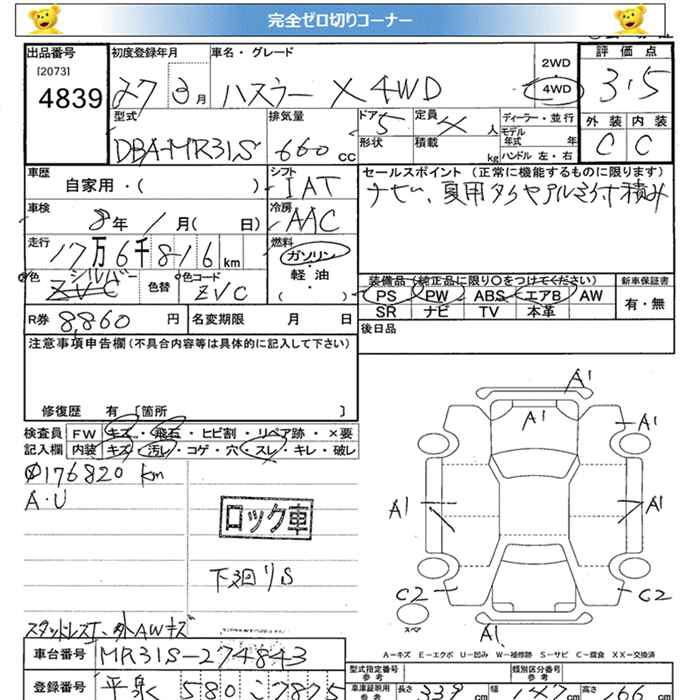 完全ゼロ切りコーナー
出品番号 初度登録年月 車名・グレード 2WD 評価点
[2073] 4839 27 3月 ハスラー X 4WD 4WD 3.5
型式 排気量 ドア 定員 ディーラー・並行 外装 内装
DBA-MR31S 660cc 5 4人 モデル年式 年 C C
形状 積載 kg ハンドル 左・右
車歴 シフト セールスポイント(正常に機能するものに限ります)
自家用・( ) IAT ナビ、夏用タイヤアルミ付積み
車検 冷房
8年 1月( 日) AAC
走行 燃料
17万6千816km ガソリン・軽油 ( )
色 シルバー 色替 色コード 装備品(純正品に限り○をつけてください) 新車保証書
ZVC ZVC PS PW ABS エアB AW 有・無
R券 8,860円 名変期限 月 日 SR ナビ TV 本革
注意事項申告欄(不具合内容等は具体的に記入して下さい) 後日品
修復歴 有 [箇所 ]
検査員 FW キズ・飛石・ヒビ割・リペア跡・×要
記入欄 内装 キズ・汚レ・コゲ・穴・スレ・キレ・破レ
176820 km
A・U
ロック車
下廻りS
スタッドレス I・外AWキズ
A1
A1
A1
A1 A1
C2 C2
スペア
A1
A=キズ E=エクボ U=凹み W=補修跡 S=サビ C=腐食 XX=交換済
車台番号 MR31S-274843 型式指定番号 参考 類別区分番号 参考
登録番号 平泉 580 こ7875 車庫証明用 参考 長さ 339cm 幅 147cm 高さ 166cm